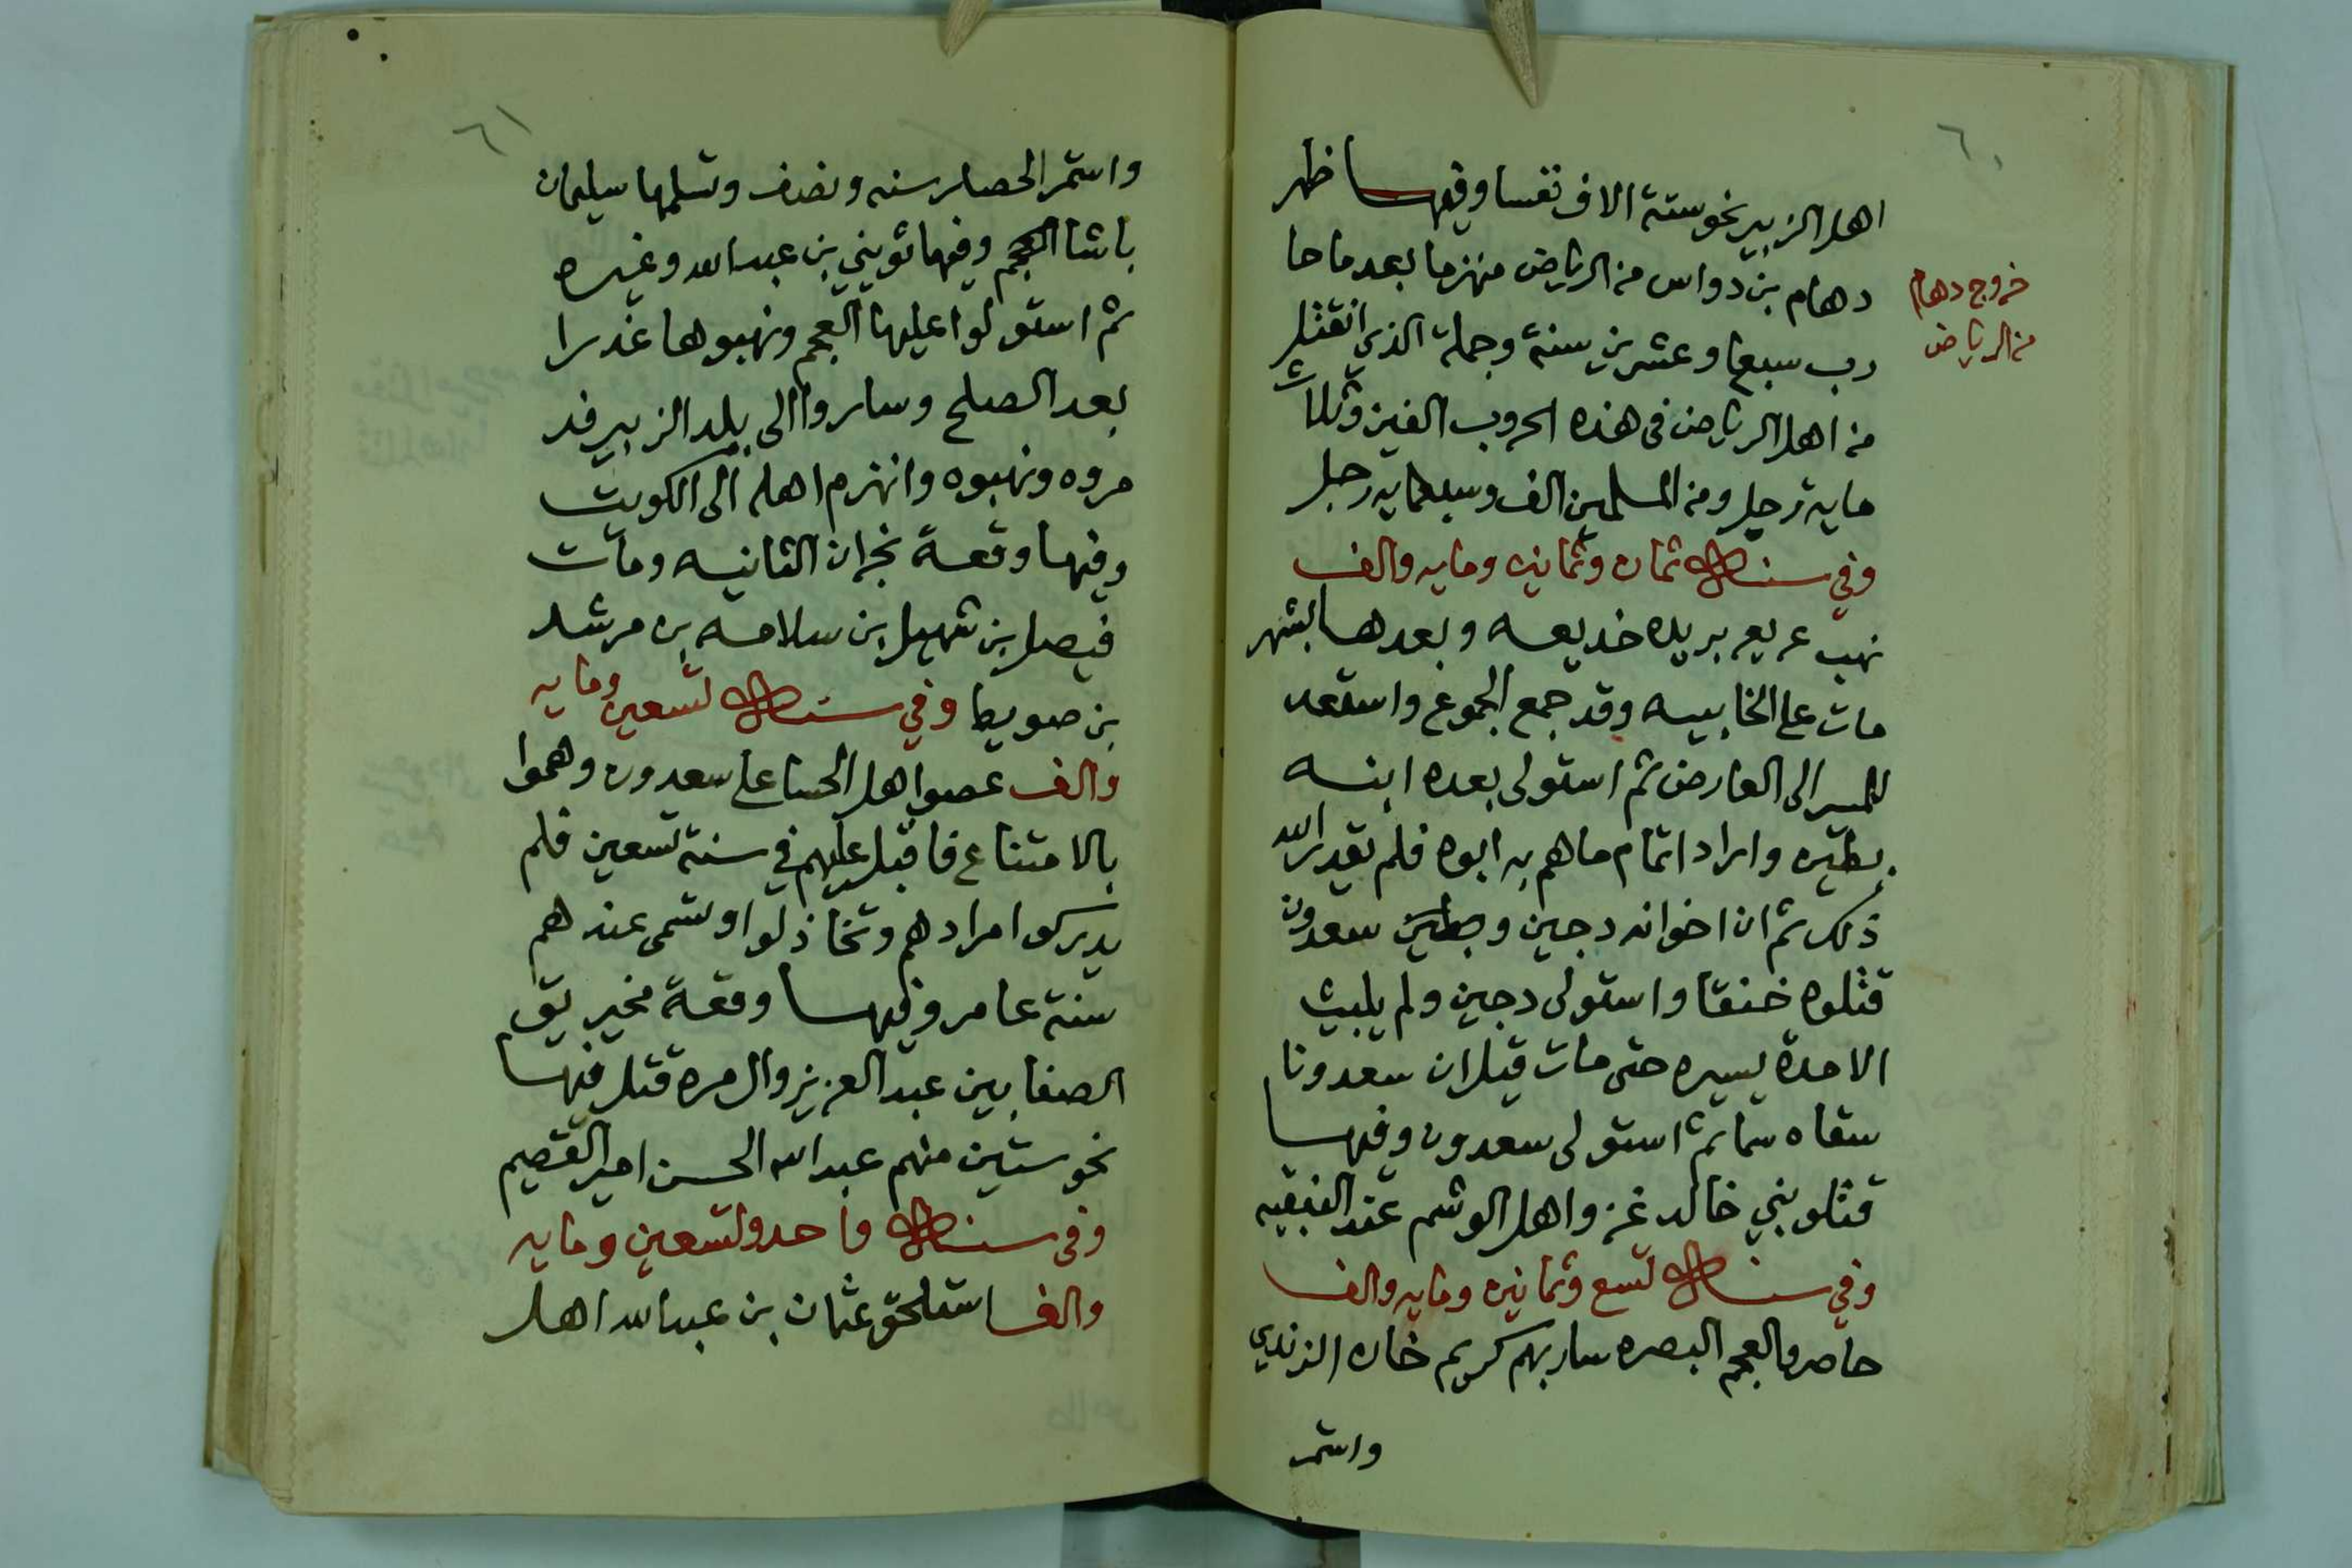 ٦٠
اهل الزبير نحو ستة الاف نفسا وفيها ظهر
دهام بن دواس من الرياض منهزما بعد ما حا
رب سبعا وعشرين سنة وجملة الذي انقتل
من اهل الرياض في هذه الحروب الفين وثلاث
ماية رجل ومن المسلمين الف وسبعماية رجل
وفي سنة ثمان وثمانين ومايه والف
نهب عريعر بريده خديعه وبعدها بشهر
مات على الخابيه وقد جمع الجموع واستعد
للمسير الى العارض ثم استولى بعده ابنه
بطين واراد اتمام ما هم به ابوه فلم يقدر الله
ذلك ثم ان اخوانه دجين وبطين سعدون
قتلوه خنقا واستولى دجين ولم يلبث
الا مدة يسيره حتى مات قيل ان سعدونا
سقاه سما ثم استولى سعدون وفيها
قتلو بني خالد غزو اهل الوشم عند النبقيه
وفي سنة تسع وثمانين ومايه والف
حاصرو العجم البصره سار بهم كريم خان الزندي
واستمر
خروج دهام
من الرياض
٦١
واستمر الحصار سنه ونصف وتسلمها سليمان
باشا العجم وفيها ثويني بن عبدالله وغيره
ثم استولوا عليها العجم ونهبوها غدرا
بعد الصلح وساروا الى بلد الزبير فد
مروه ونهبوه وانهزم اهله الى الكويت
وفيها وقعة نجران الثانيه ومات
فيصل بن شهيل بن سلامه بن مرشد
بن صويط وفي سنة تسعين ومايه
والف عصوا اهل الحسا على سعدون وهموا
بالامتناع فاقبل عليهم في سنة تسعين فلم
يدركوا مرادهم وتخاذلوا وتسمى عندهم
سنة عامر وفيها وقعة مخيريق
الصفا بين عبد العزيز وال مره قتل فيها
نحو ستين منهم عبدالله الحسن امير القصيم
وفي سنة واحد وتسعين ومايه
والف استلحق عثمان بن عبدالله اهل